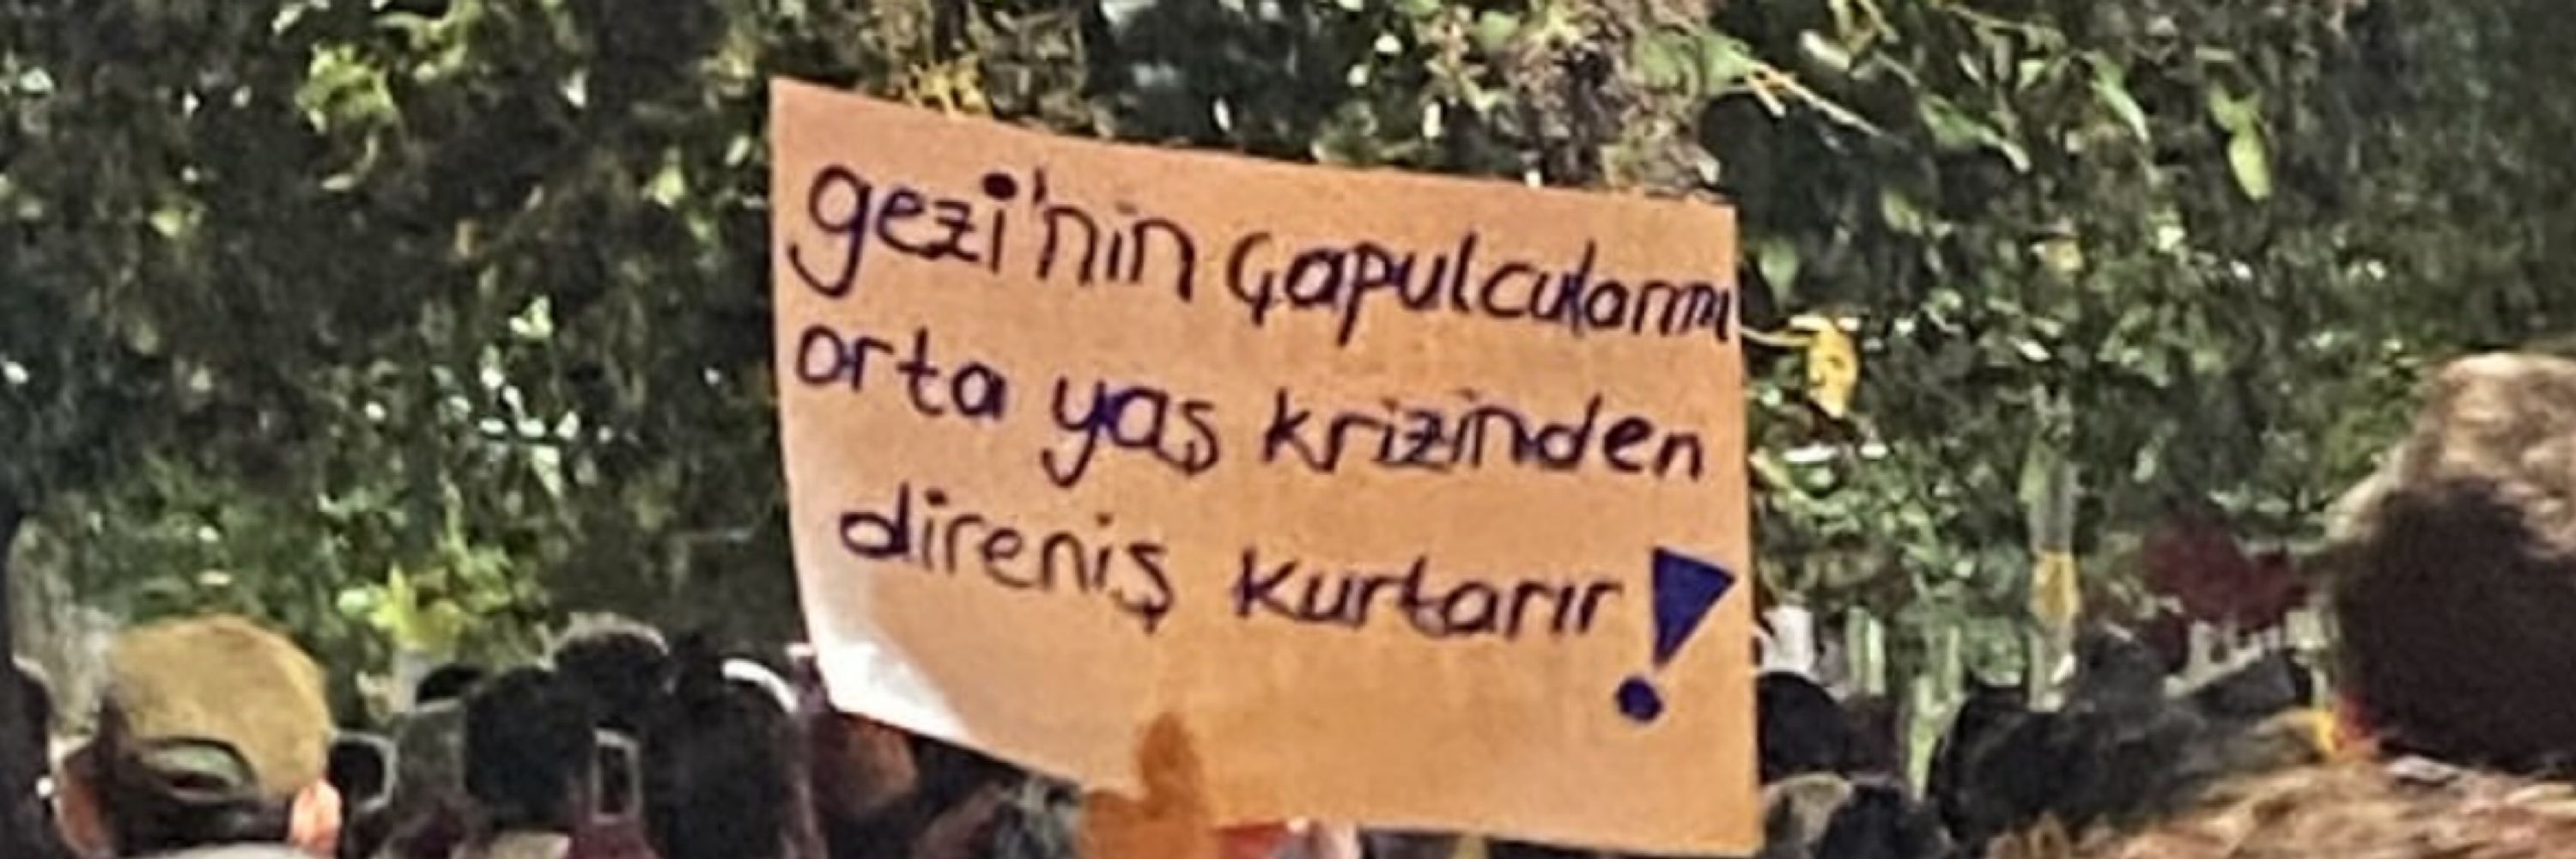 gezi'nin çapulcularını
orta yaş krizinden
direniş kurtarır!